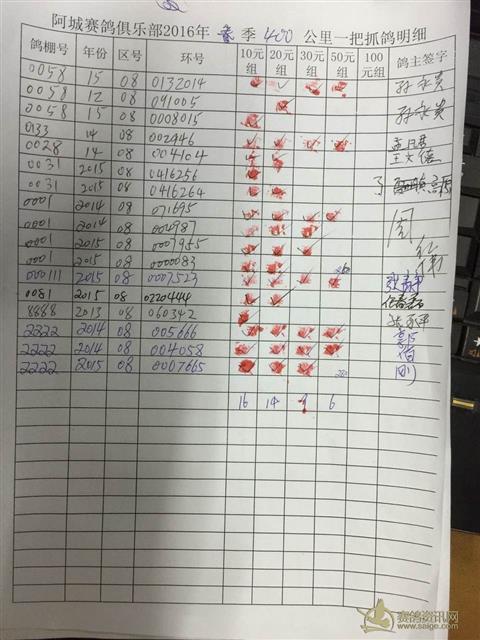 阿城赛鸽俱乐部2016年 春 季 400 公里一把抓鸽明细
鸽棚号 年份 区号 环号 10元组 20元组 30元组 50元组 100元组 鸽主签字
0058 15 08 0132014 孙永贵
0058 12 08 091005
0058 15 08 0008015 孙永贵
0133 14 08 002446
0028 14 08 004104
0031 2015 08 0416256
0031 2015 08 0416264
0001 2014 08 071695
0001 2014 08 004987
0001 2015 08 0007955
0001 2015 08 0000083
000111 2015 08 0007523
0081 2015 08 0220444
8888 2013 08 060342
2222 2014 08 005666
2222 2014 08 004058
2222 2015 08 0007665 刚
16 14 9 6
赛鸽资讯网
www.saige.com